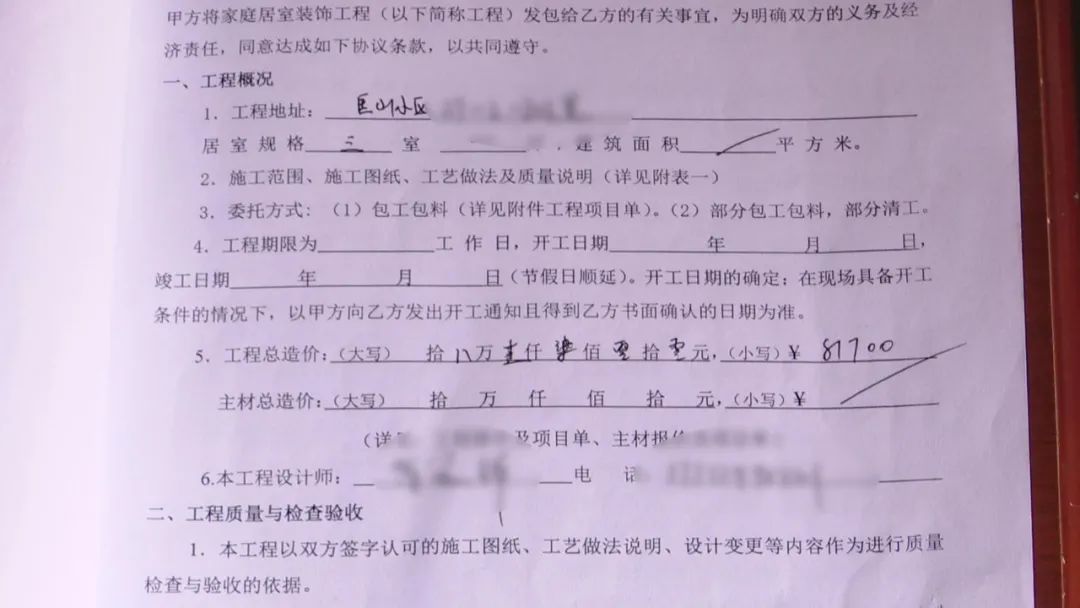 甲方将家庭居室装饰工程（以下简称工程）发包给乙方的有关事宜，为明确双方的义务及经
济责任，同意达成如下协议条款，以共同遵守。
一、工程概况
1．工程地址：匡山小区
居室规格 三 室 建筑面积 平方米。
2．施工范围、施工图纸、工艺做法及质量说明（详见附表一）
3．委托方式：（1）包工包料（详见附件工程项目单）。（2）部分包工包料，部分清工。
4．工程期限为 工作日，开工日期 年 月 日，
竣工日期 年 月 日（节假日顺延）。开工日期的确定：在现场具备开工
条件的情况下，以甲方向乙方发出开工通知且得到乙方书面确认的日期为准。
5．工程总造价：（大写） 拾 八 万 壹 仟 柒 佰 零 拾 零 元，（小写）¥ 81700
主材总造价：（大写） 拾 万 仟 佰 拾 元，（小写）¥
（详 及项目单、主材报
6.本工程设计师： 电
二、工程质量与检查验收
1．本工程以双方签字认可的施工图纸、工艺做法说明、设计变更等内容作为进行质量
检查与验收的依据。